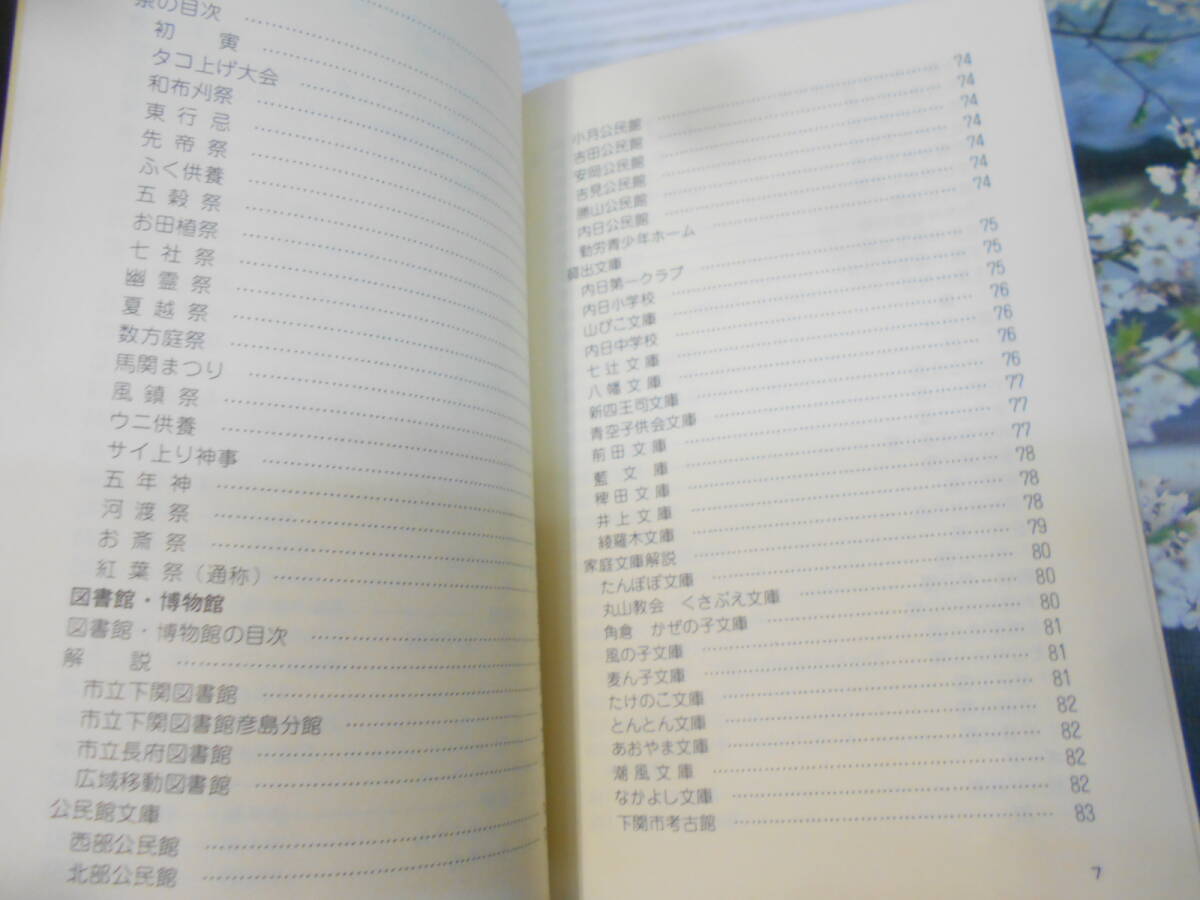 祭の目次
初寅
タコ上げ大会
和布刈祭
東行忌
先帝祭
ふく供養
五穀祭
お田植祭
七社祭
幽霊祭
夏越祭
数方庭祭
馬関まつり
風鎮祭
ウニ供養
サイ上り神事
五年神
河渡祭
お斎祭
紅葉祭(通称)
図書館・博物館
図書館・博物館の目次
解説
市立下関図書館
市立下関図書館彦島分館
市立長府図書館
広域移動図書館
公民館文庫
西部公民館
北部公民館
小月公民館 74
吉田公民館 74
安岡公民館 74
吉見公民館 74
勝山公民館 74
内日公民館 74
勤労青少年ホーム 74
貸出文庫
内日第一クラブ 75
内日小学校 75
山びこ文庫 75
内日中学校 76
七辻文庫 76
八幡文庫 76
新四王司文庫 76
青空子供会文庫 77
前田文庫 77
藍文庫 77
稗田文庫 78
井上文庫 78
綾羅木文庫 78
家庭文庫解説 79
たんぽぽ文庫 80
丸山教会 くさぶえ文庫 80
角倉 かぜの子文庫 80
風の子文庫 81
麦ん子文庫 81
たけのこ文庫 81
とんとん文庫 82
あおやま文庫 82
潮風文庫 82
なかよし文庫 82
下関市考古館 83
7